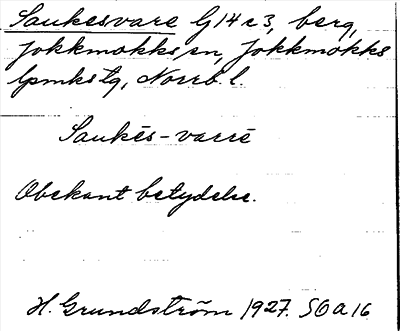 Saukesvare G14e3, berg,
Jokkmokks sn, Jokkmokks
lpmkstg, Norrb. l.
Saukēs-varrē
Obekant betydelse.
H. Grundström 1927. SOA 16